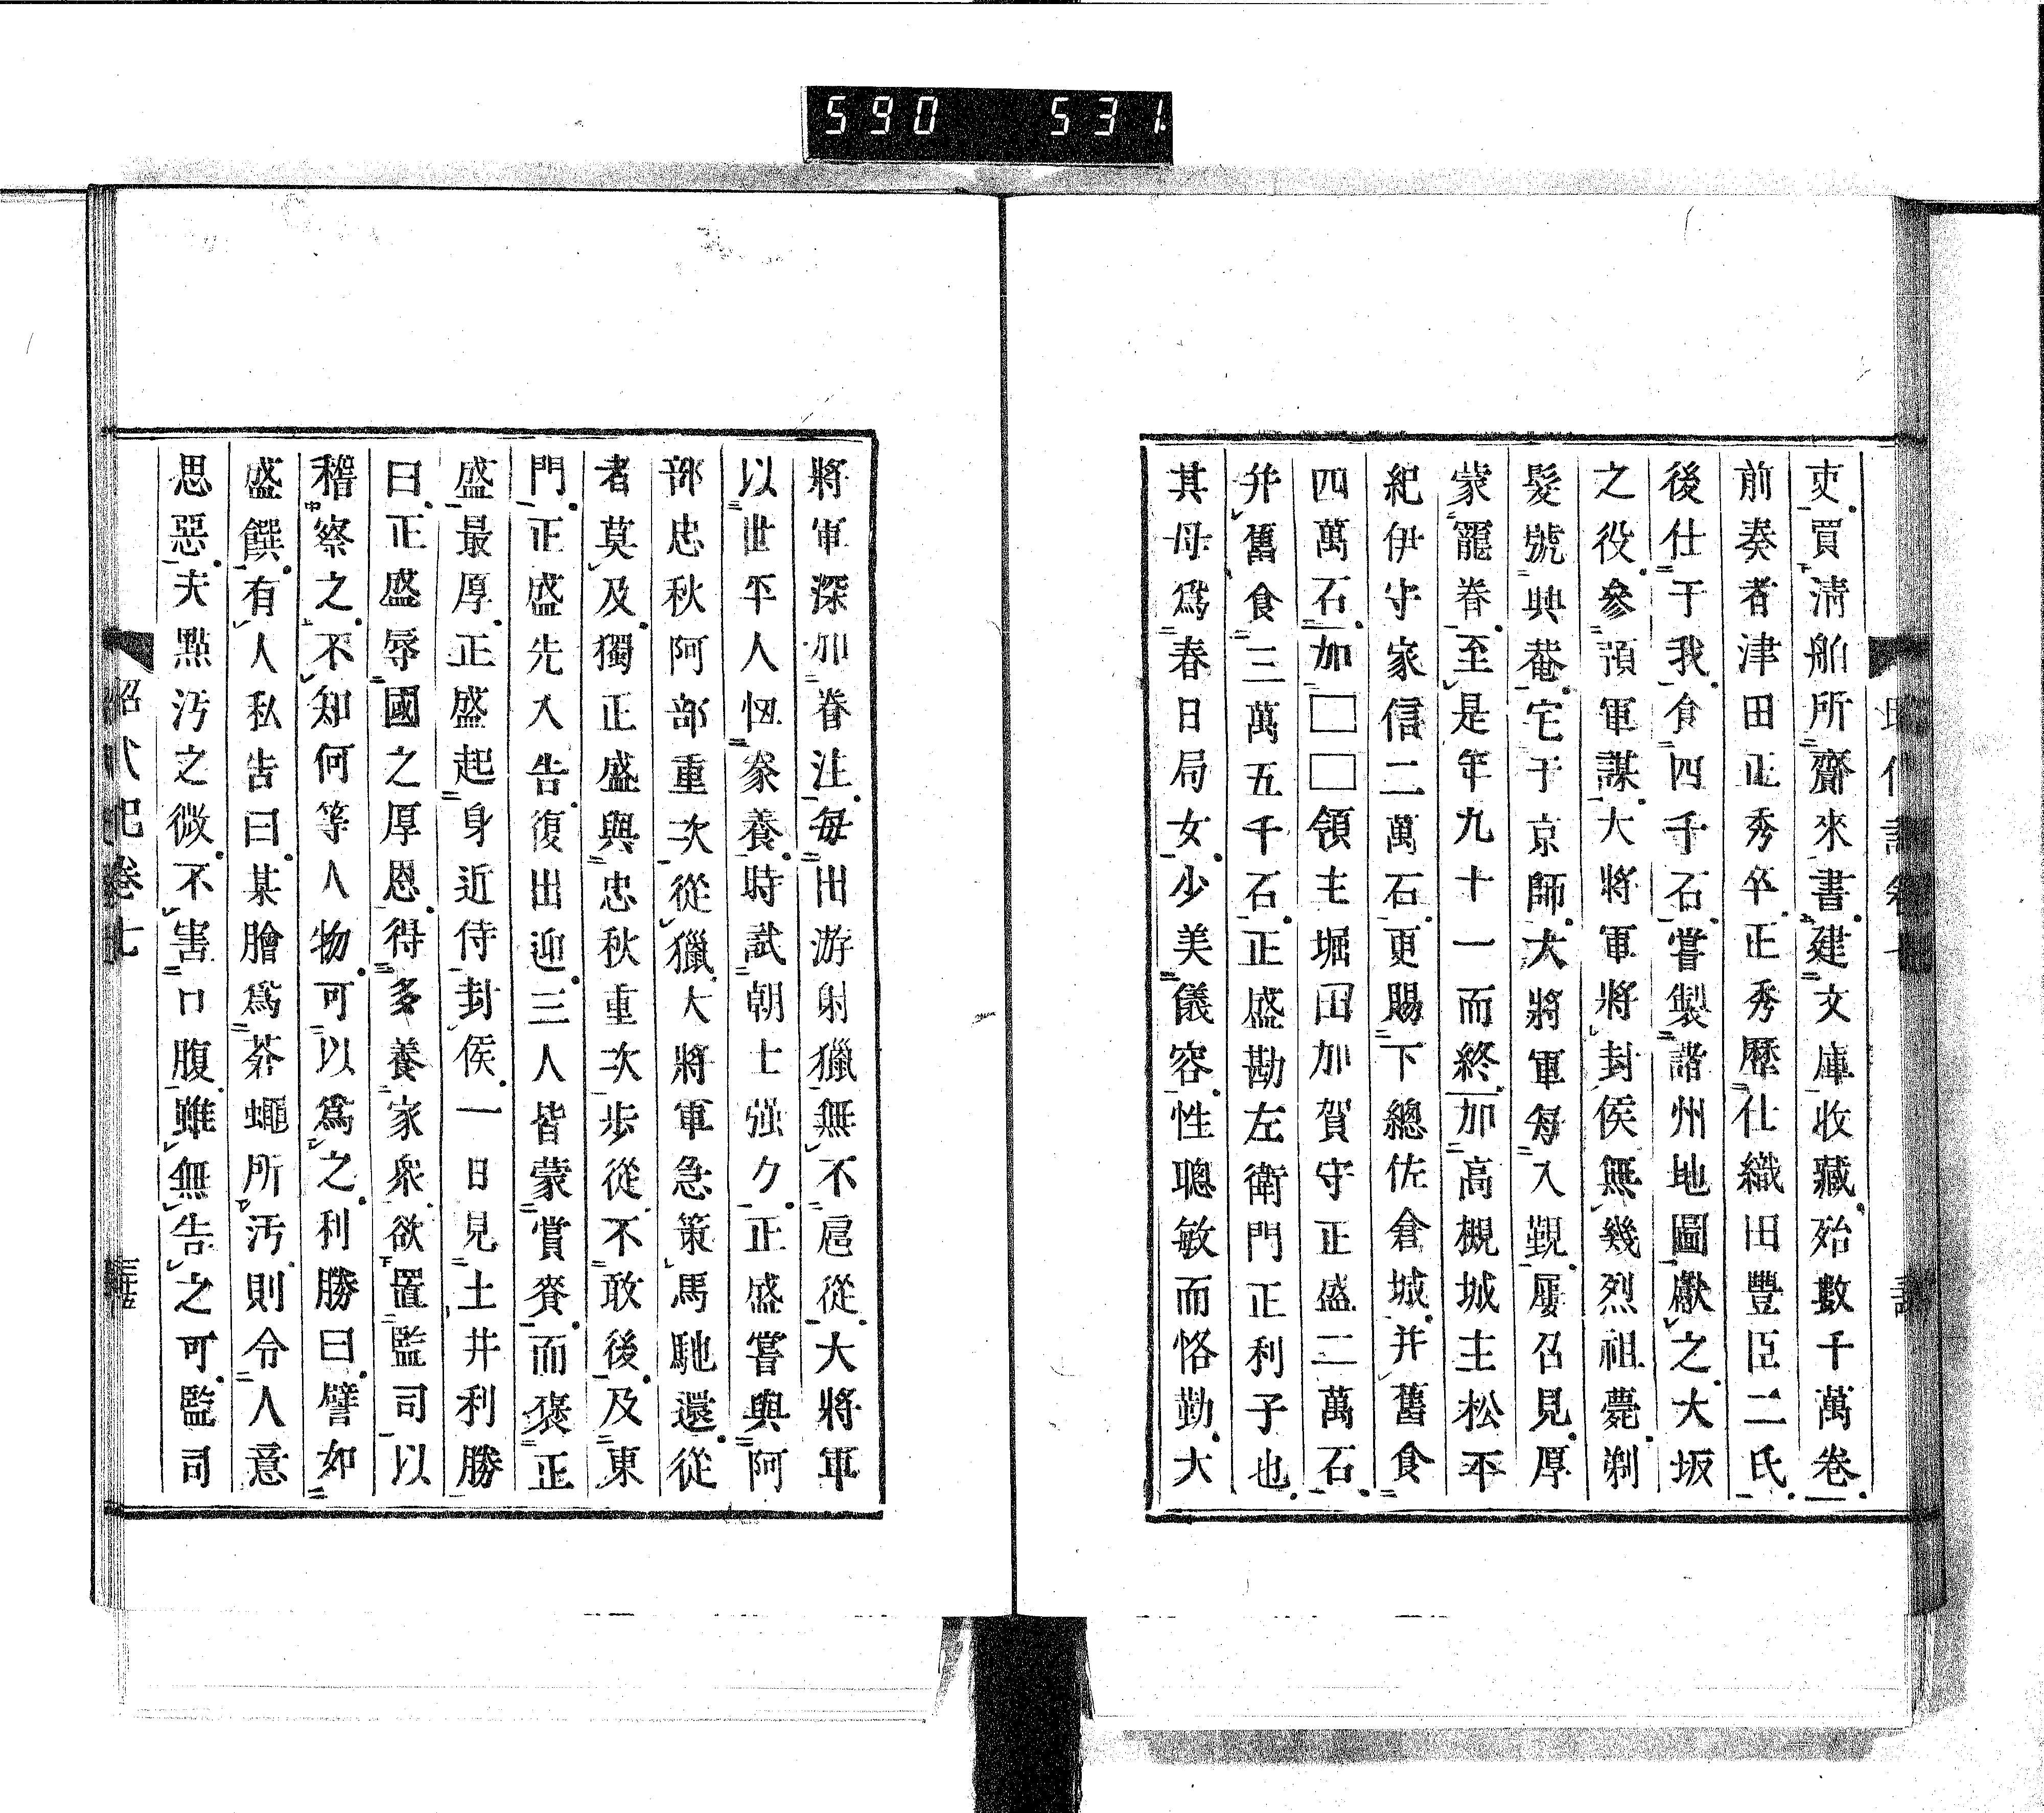 590 531
吏買清舶所齎來書建文庫收藏殆數千萬卷
前奏者津田正秀卒正秀歷仕織田豐臣二氏
後仕于我食四千石嘗製諸州地圖獻之大坂
之役參預軍謀大將軍將封侯無幾烈祖薨剃
髮號與菴宅于京師大將軍每入覲屢召見厚
蒙寵眷至是年九十一而終加高槻城主松平
紀伊守家信二萬石更賜下總佐倉城并舊食
四萬石加□□領主堀田加賀守正盛二萬石
并舊食三萬五千石正盛勘左衛門正利子也
其母爲春日局女少美儀容性聰敏而恪勤大
將軍深加眷注每出游射獵無不扈從大將軍
以世平人忸豢養時試朝士强勺正盛嘗與阿
部忠秋阿部重次從獵大將軍急策馬馳還從
者莫及獨正盛與忠秋重次步從不敢後及東
門正盛先入告復出迎三人皆蒙賞賚而褒正
盛最厚正盛起身近侍封侯一日見土井利勝
曰正盛辱國之厚恩得多養家衆欲置監司以
稽察之不知何等人物可以爲之利勝曰譬如
盛饌有人私告曰某膾爲芥蠅所汚則令人意
思惡夫點汚之微不害口腹雖無告之可監司
昭代記卷七